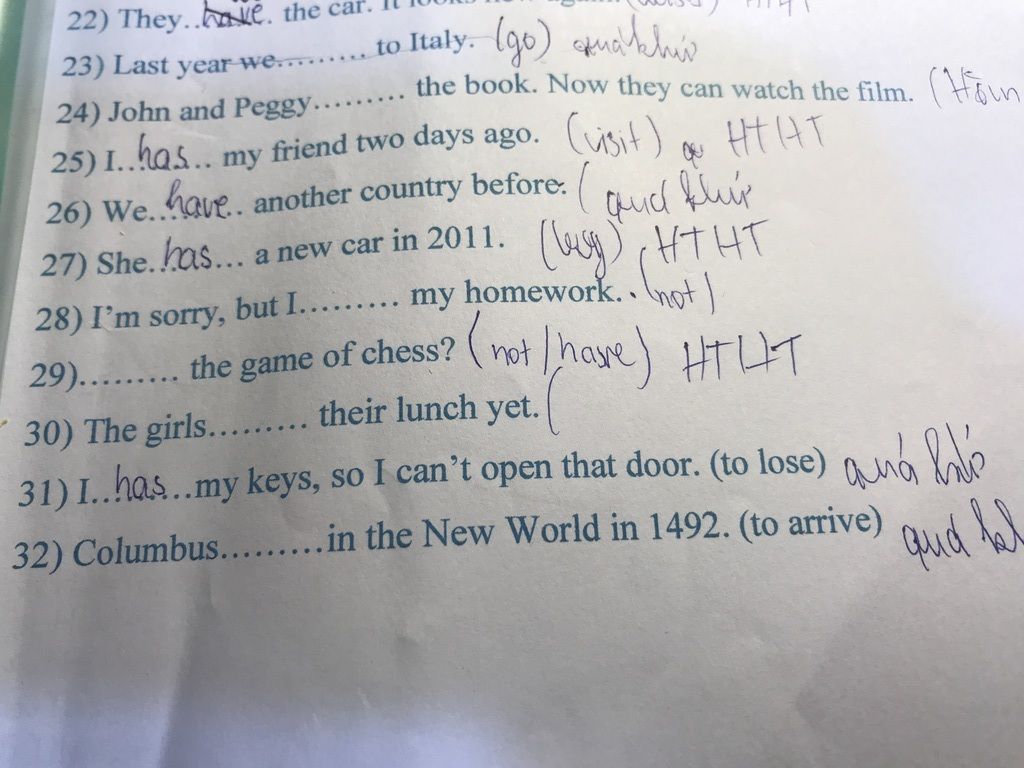 22) They..have. the car. It looks new again.
23) Last year we......... to Italy. (go) quá khứ
24) John and Peggy......... the book. Now they can watch the film. (
25) I..has.. my friend two days ago. (visit) HTHT
26) We..have.. another country before. ( quá khứ
27) She..has... a new car in 2011. (buy) HTHT
28) I'm sorry, but I......... my homework. . (not)
29)......... the game of chess? (not / have) HTHT
30) The girls......... their lunch yet. (
31) I..has...my keys, so I can't open that door. (to lose) quá khứ
32) Columbus..........in the New World in 1492. (to arrive) quá